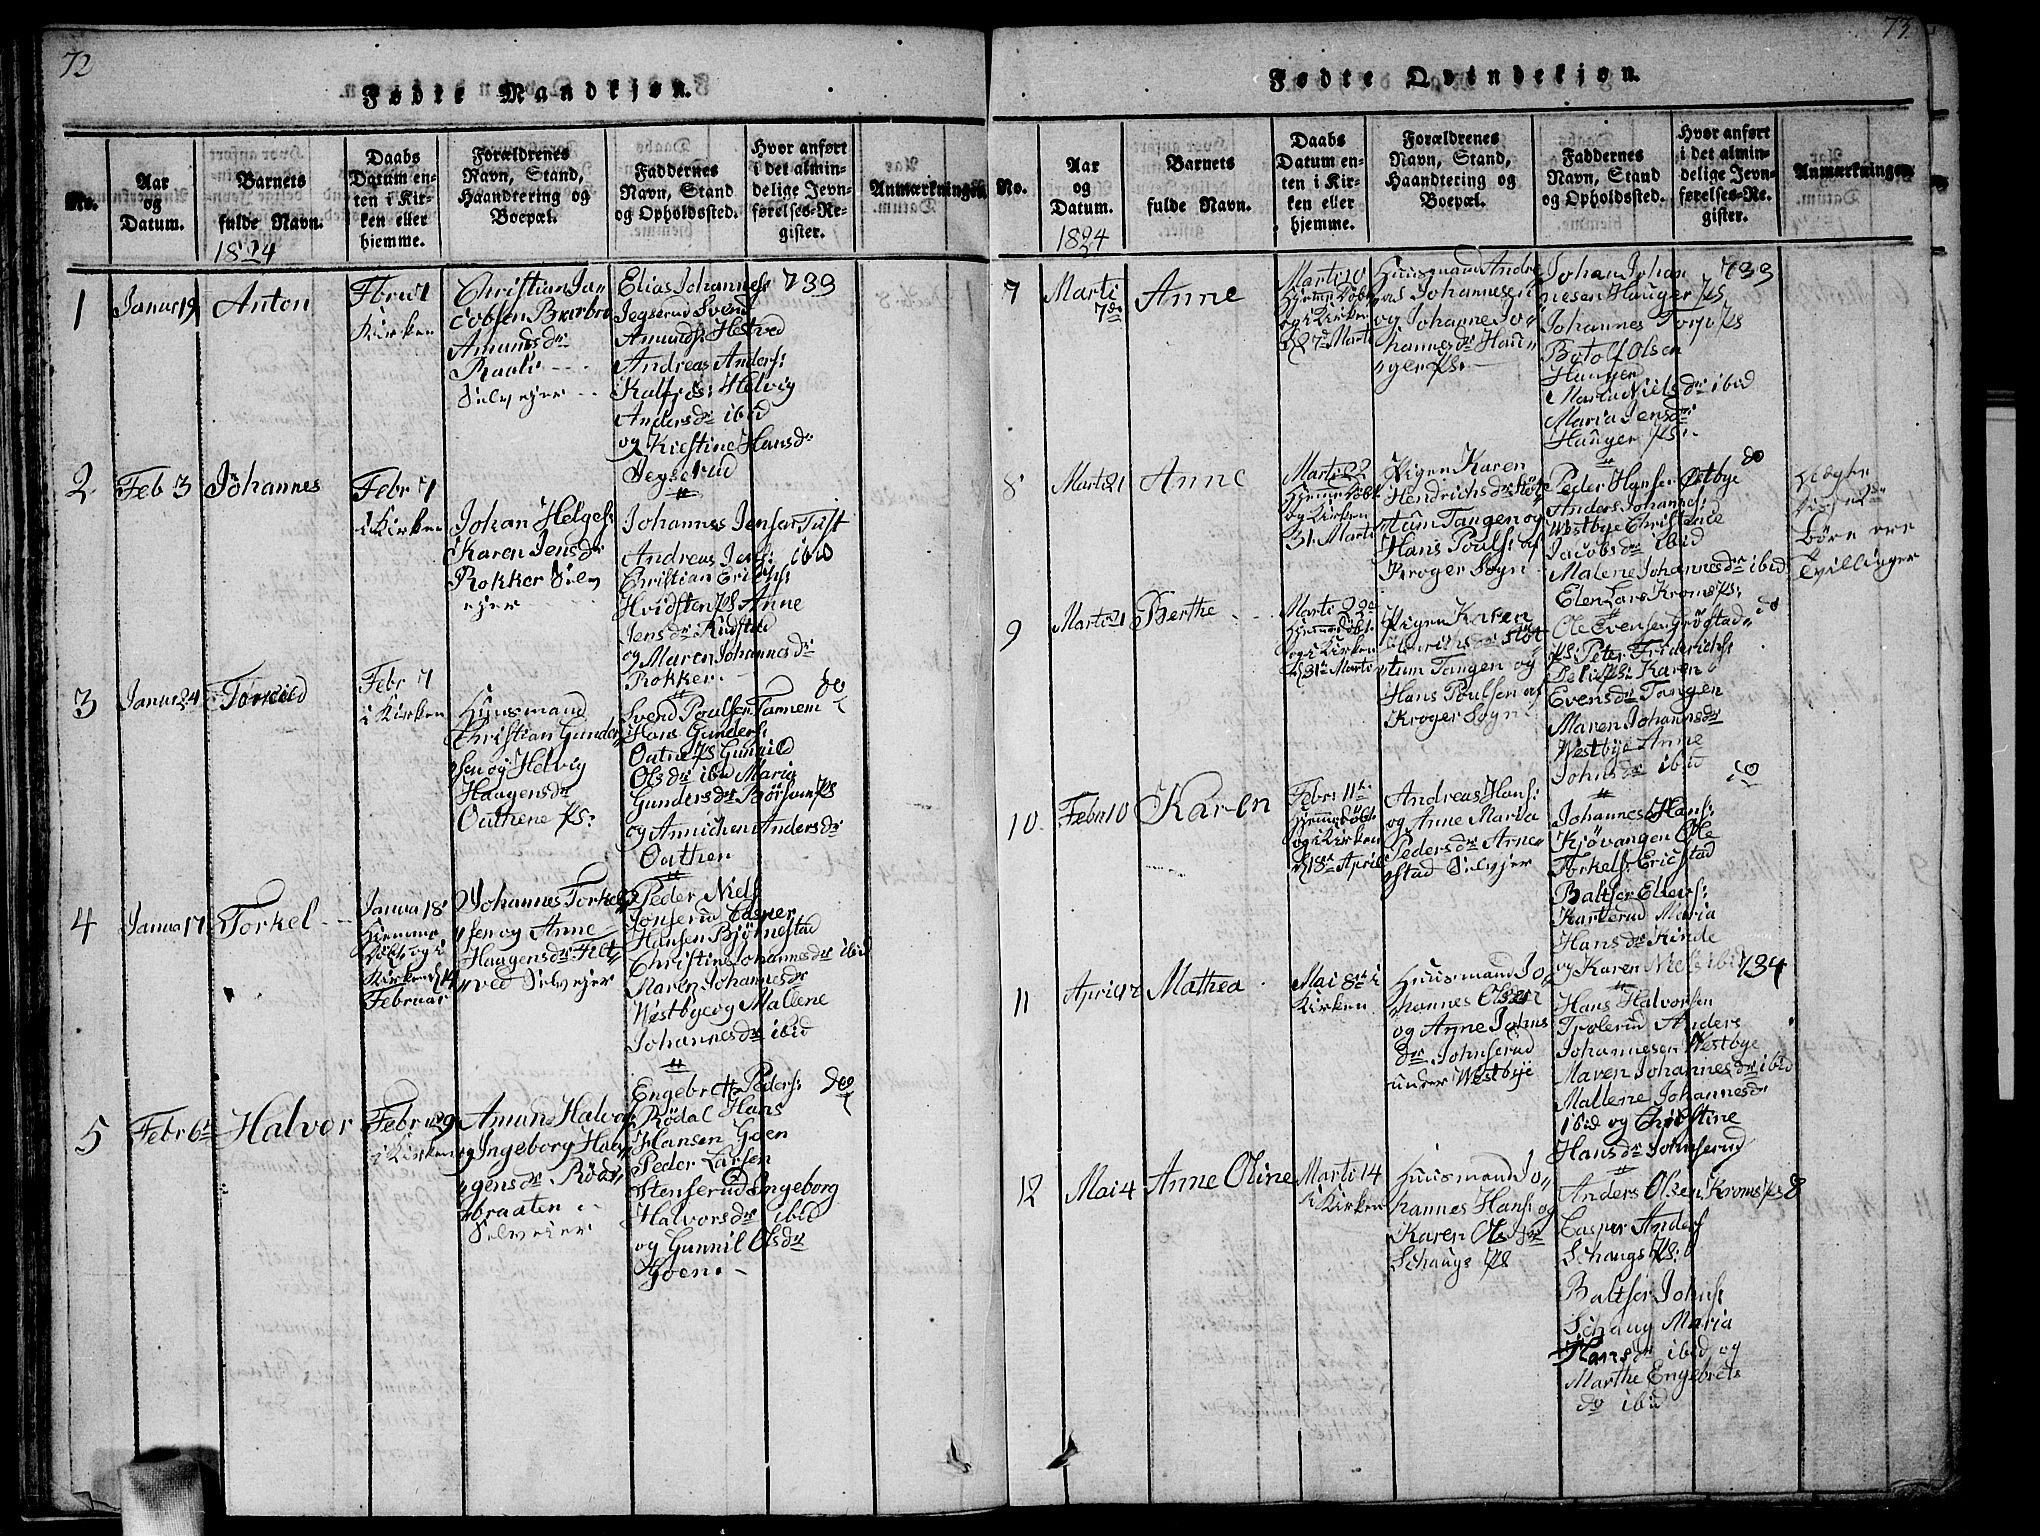 72
Fødte Mandkjøn.
No.
Aar
og
Datum.
Barnets
fulde Navn.
1824
Daabs
Datum en-
ten i Kir-
ken eller
hjemme.
Forældrenes
Navn, Stand,
Haandtering og
Boepæl.
Faddernes
Navn, Stand
og Opholdssted.
Hvor anført
i det almin-
delige Jevn-
førelses-Re-
gister.
Anmærkninger.
1
Januar 19
Anton
Fbru 1
Kirken
Christian Ja-
cobsen
Amunds dr
Selvejer
Elias Johannes
Jegserud Svend
Amunds Hestved
Andreas Anders:
Helvig
Anders dr ibid
og Kirstine Hans dr
Jegserud
733
2
Feb 3
Johannes
Febr 1
i Kirken
Johan Helges:
Karen Jens dr
Rokker Selv
ejer
Johannes Jensen Tust
Andreas Jens: ibid
Christian Erichs:
Hvidsten Ps Anne
Jens dr Rudstad
og Maren Johannes dr
Rokker.
3
Januar 24
Febr 1
i Kirken
Huusmand
Christian Gunder
sen og Helvig
Haagens dr
Oathene Ps:
Svend Poulsen
Hans Gunders:
Oatne Ps Gunild
Ols dr ibid Maria
Gunders dr Ps
og Annichen Anders dr
Oathen
do
4
Janua 17
Torkel
Janua 18
Hjemme
døbt og i
Kirken d 14
Februar
Johannes Torkel
sen og Anne
Haagens dr
ved Selvejer
Peder Niels
Jonserud Casper
Hansen Bjørnestad
Christine Johannes dr ibid
Karen Johannes dr
Westbye og Mallene
Johannes dr ibid
5
Febr 6t
Halvor
Febru 29
i Kirken
Amun Halvor
og Ingeborg Haa
gens dr Röds
braaten
Selvejer
Engebret Peders:
Rödal Hans
Hansen Goen
Peder Larsen
Stenserud Ingeborg
Halvors dr ibid
og Gunnil Ols dr
Goen.
do
73
Fødte Qvindekjøn.
No.
Aar
og
Datum.
1824
Barnets
fulde Navn.
Daabs
Datum en-
ten i Kir-
ken eller
hjemme.
Forældrenes
Navn, Stand,
Haandtering og
Boepæl.
Faddernes
Navn, Stand
og Opholdssted.
Hvor anført
i det almin-
delige Jevn-
førelses-Re-
gister.
Anmærkninger.
7
Marti
7de
Anne
Marti 10
hjemme døbt
og i Kirken
Marti
Huusmand Andre
as Johannesen
og Johanne Jo
hannes dr Hau
ger Ps.
Johan Johan
nesen Hauger Ps
Johannes Torp Ps
Botolf Olsen
Hauger
Maria Niels dr ibid
Maria Jens dr
Hauger Ps:
733
8
Mart 21
Anne
Marti 22
hjemmedøbt
og Kirken
31 Marti
Pigen Karen
Hendrichs dr
Tangen og
Hans Pouls: af
Kroger Sogn
Peder Hansen Østbye
Anders Johannes:
Westbye Christence
Jacobs dr ibid
Malene Johannes dr ibid
Elen Lars Kroms Ps:
do
Børn ere
Tvillinger
9
Mart 21
Berthe
Marti 22de
hjemmedøbt
og i Kirken
d 31te Marti
Pigen Karen
Henrichs dr
Tangen og
Hans Poulsen af
Kroger Sogn
Ole Evensen Gröstad
Ps: Peter Friderichs:
Ps: Karen
Evens dr Tangen
Maren Johanns dr
Westbye Anne
Johns dr ibid
do
10
Febr 10
Karen
Febr: 11te
hjemmedøbt
og i Kirken
d 18de April
Andreas Hans:
og Anne Maria
Peders dr Arne
stad Selvejer
Johannes Hans:
Kjövangen Ole
Torkels: Ericstad
Baltser Ellevs:
Karterud Maria
Hans dr Kinde
og Karen Niels ibid
do
11
April 17
Mathea
Mai 8de i
Kirken
Huusmand Jo
hannes Olsen
og Anne Johns
dr Johnserud
under Westbye
Hans Halvorsen
Trolerud Anders
Johannesen Westbye
Maren Johannes dr ibid
Mallene Johannes dr
ibid og Christine
Hans dr Johnserud
734
12
Mai 4
Anne Oline
Marti 14
i Kirken
Huusmand Jo
hannes Hans: og
Karen Ols dr
Schaugs Ps
Anders Olsen Kroms Ps 8
Casper Anders
Schaugs Ps:
Baltser Johns:
Schaug Maria
Hans dr ibid og
Marthe Engebrets
dr ibid